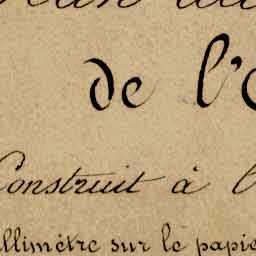 de l'
Construit à l
llimètre sur le papie